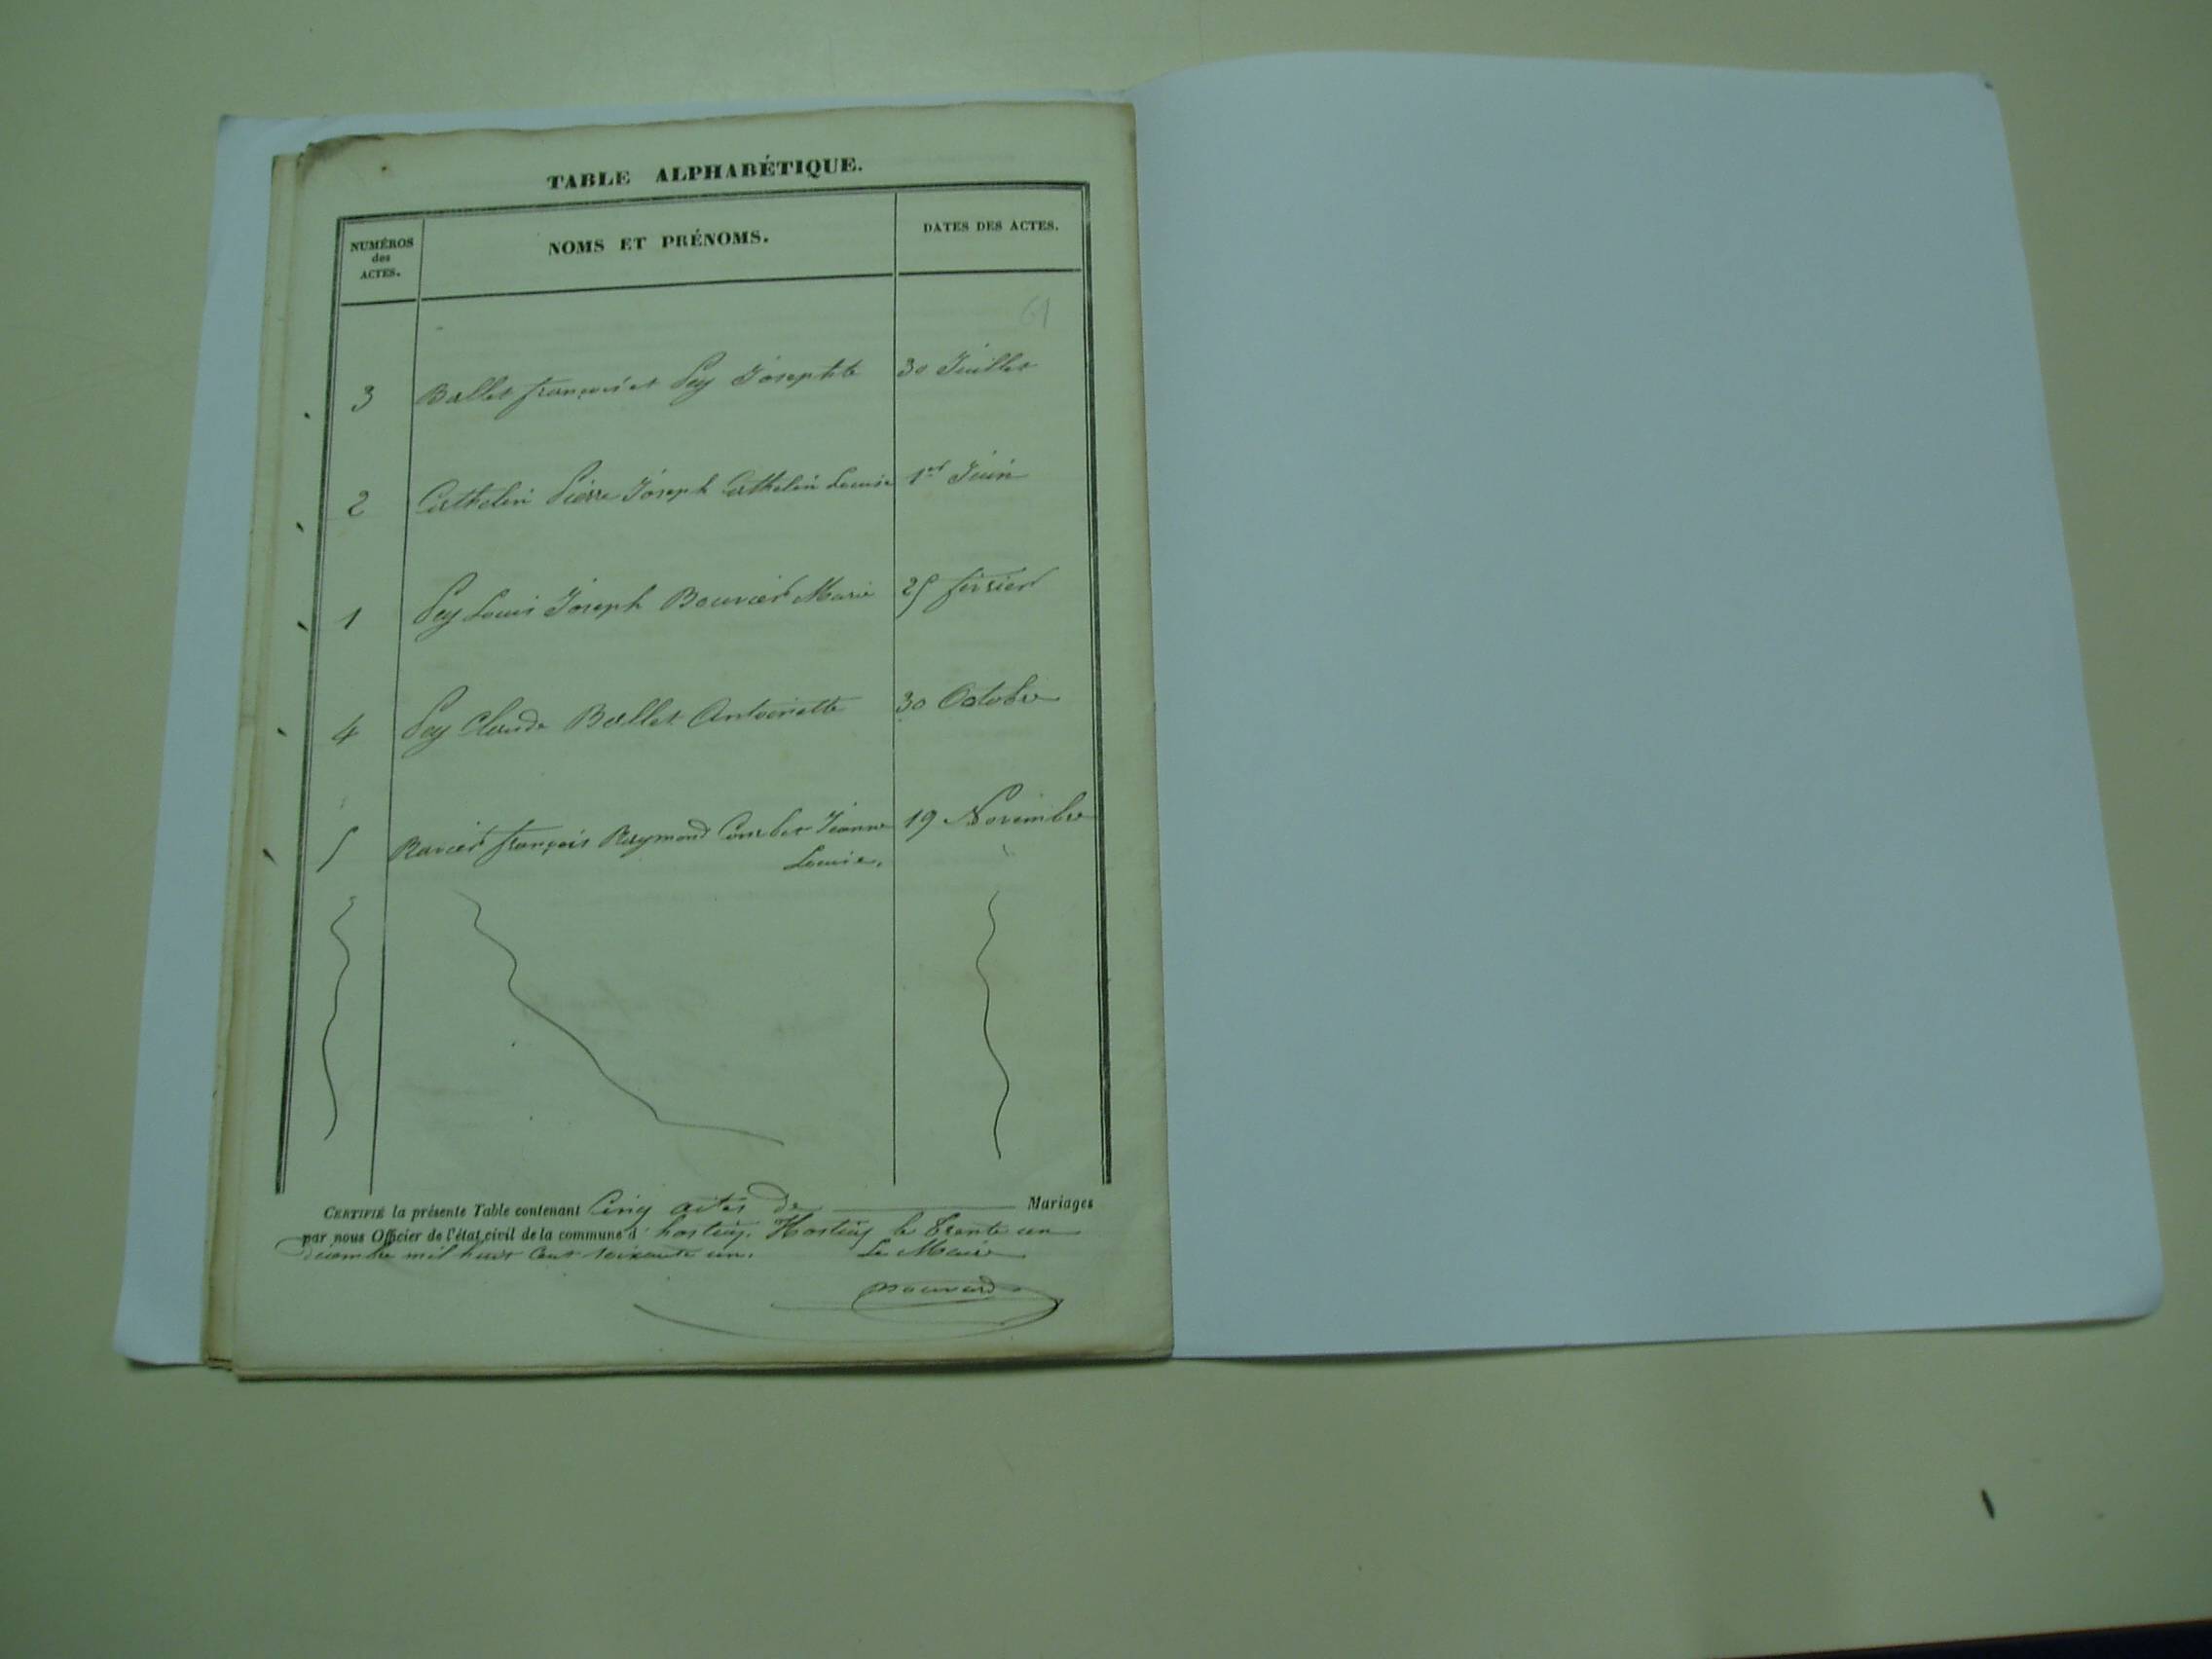 TABLE ALPHABÉTIQUE.
NUMÉROS
des
ACTES.
NOMS ET PRÉNOMS.
DATES DES ACTES.
61
3 Ballet françois et Pey Josephte 30 Juillet
2 Cathelin Pierre Joseph Cathelin Louise 1er Juin
1 Pey Louis Joseph Bouvier Marie 25 février
4 Pey Claude Ballet Antoinette 30 Octobre
5 Ravier françois Raymond Courbet Jeanne 19 Novembre
Louise.
CERTIFIÉ la présente Table contenant Cinq actes de Mariages
par nous Officier de l'état civil de la commune d'hostiaz. Hostiaz le trente un
décembre mil huit cent soixante un. Le Maire